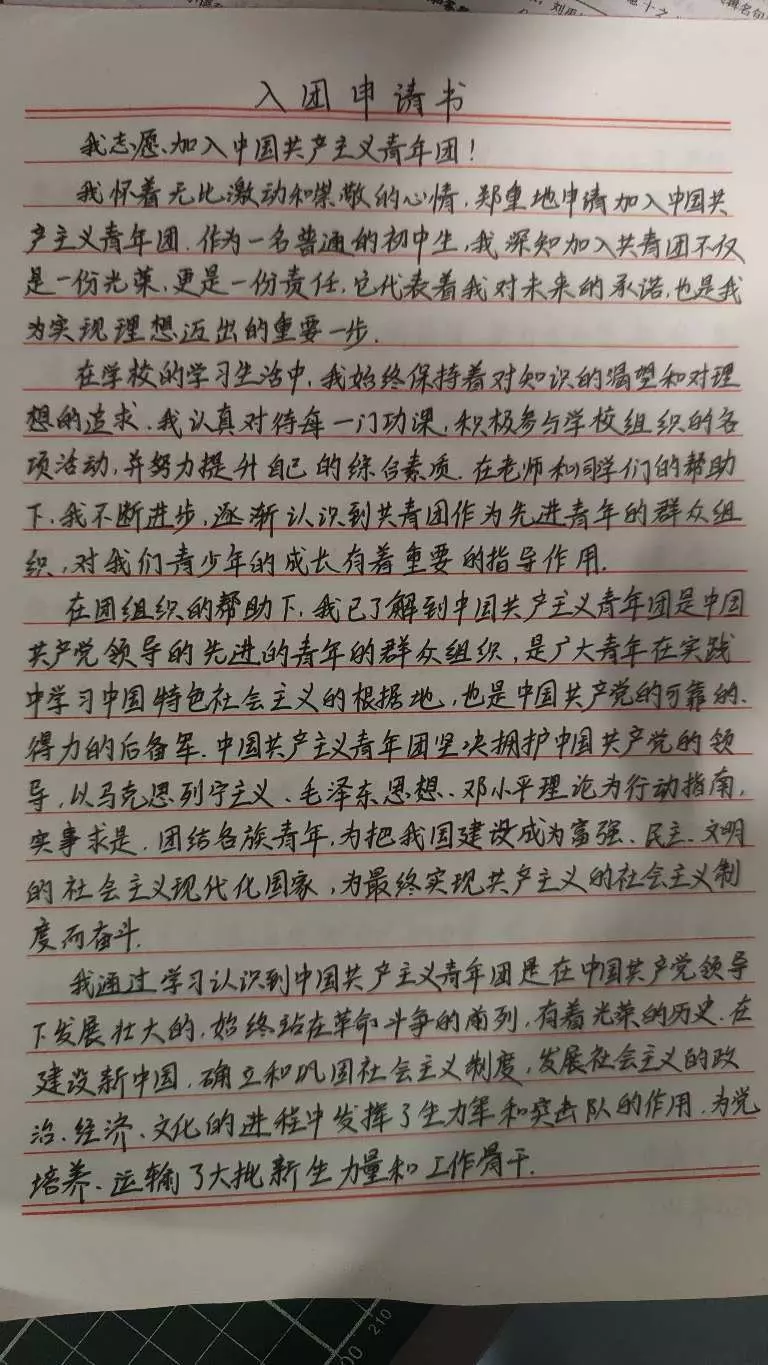 入团申请书
我志愿加入中国共产主义青年团！
我怀着无比激动和崇敬的心情，郑重地申请加入中国共
产主义青年团．作为一名普通的初中生，我深知加入共青团不仅
是一份光荣，更是一份责任，它代表着我对未来的承诺，也是我
为实现理想迈出的重要一步．
在学校的学习生活中，我始终保持着对知识的渴望和对理
想的追求．我认真对待每一门功课，积极参与学校组织的各
项活动，并努力提升自己的综合素质．在老师和同学们的帮助
下，我不断进步，逐渐认识到共青团作为先进青年的群众组
织，对我们青少年的成长有着重要的指导作用．
在团组织的帮助下，我已了解到中国共产主义青年团是中国
共产党领导的先进的青年的群众组织，是广大青年在实践
中学习中国特色社会主义的根据地，也是中国共产党的可靠的、
得力的后备军．中国共产主义青年团坚决拥护中国共产党的领
导，以马克思列宁主义、毛泽东思想、邓小平理论为行动指南，
实事求是．团结各族青年，为把我国建设成为富强、民主、文明
的社会主义现代化国家，为最终实现共产主义的社会主义制
度而奋斗．
我通过学习认识到中国共产主义青年团是在中国共产党领导
下发展壮大的，始终站在革命斗争的前列，有着光荣的历史．在
建设新中国，确立和巩固社会主义制度，发展社会主义的政
治、经济、文化的进程中发挥了生力军和突击队的作用，为党
培养、运输了大批新生力量和工作骨干．
210
200